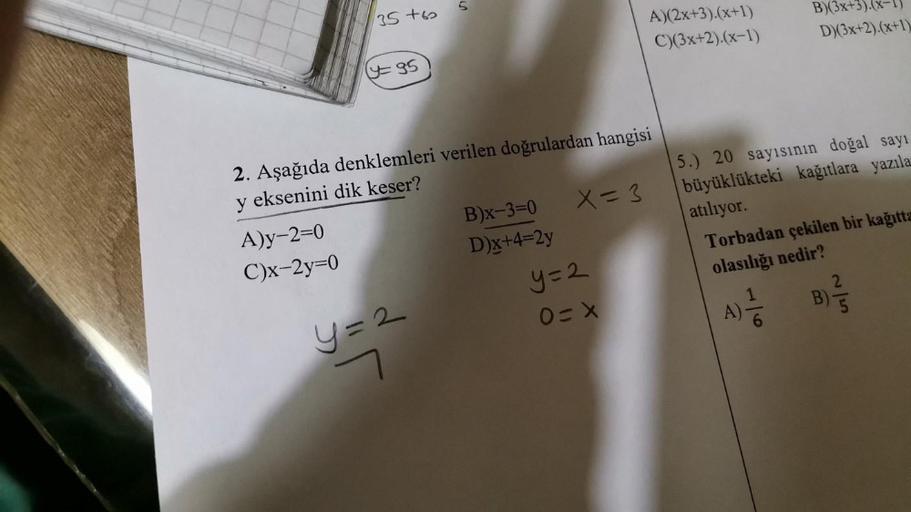 35 +60 5
y=95
2. Aşağıda denklemleri verilen doğrulardan hangisi
y eksenini dik keser?
A)y−2=0
B)x−3=0 x=3
C)x−2y=0
D)x+4=2y
y=2
0=x
y=2
A)(2x+3).(x+1)
B)(3x+3).(x−1)
C)(3x+2).(x−1)
D)(3x+2).(x+1)
5.) 20 sayısının doğal sayı
büyüklükteki kağıtlara yazıla
atılıyor.
Torbadan çekilen bir kağıtta
olasılığı nedir?
A) 1/6
B) 2/5